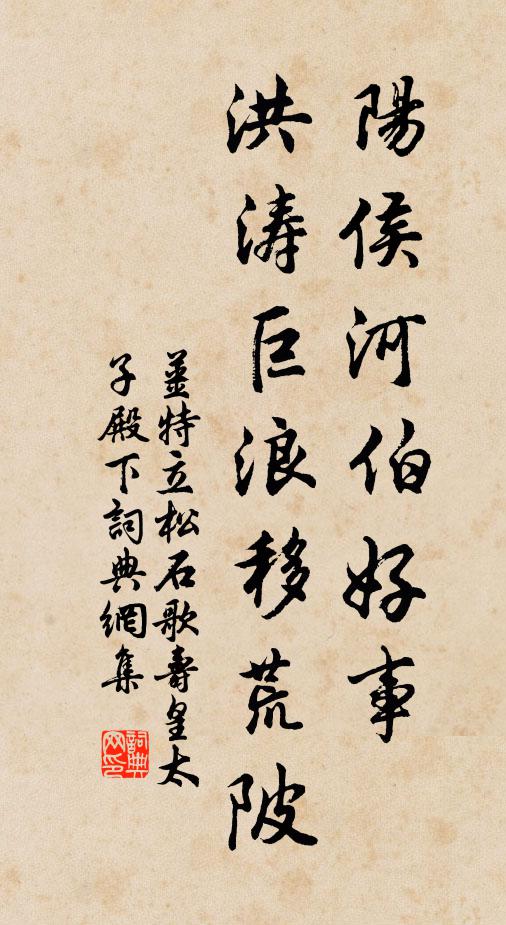 陽侯河伯好事
洪涛巨浪移荒陂
薑特立松石歌壽皇太
子殿下詞典網集
詞典網印